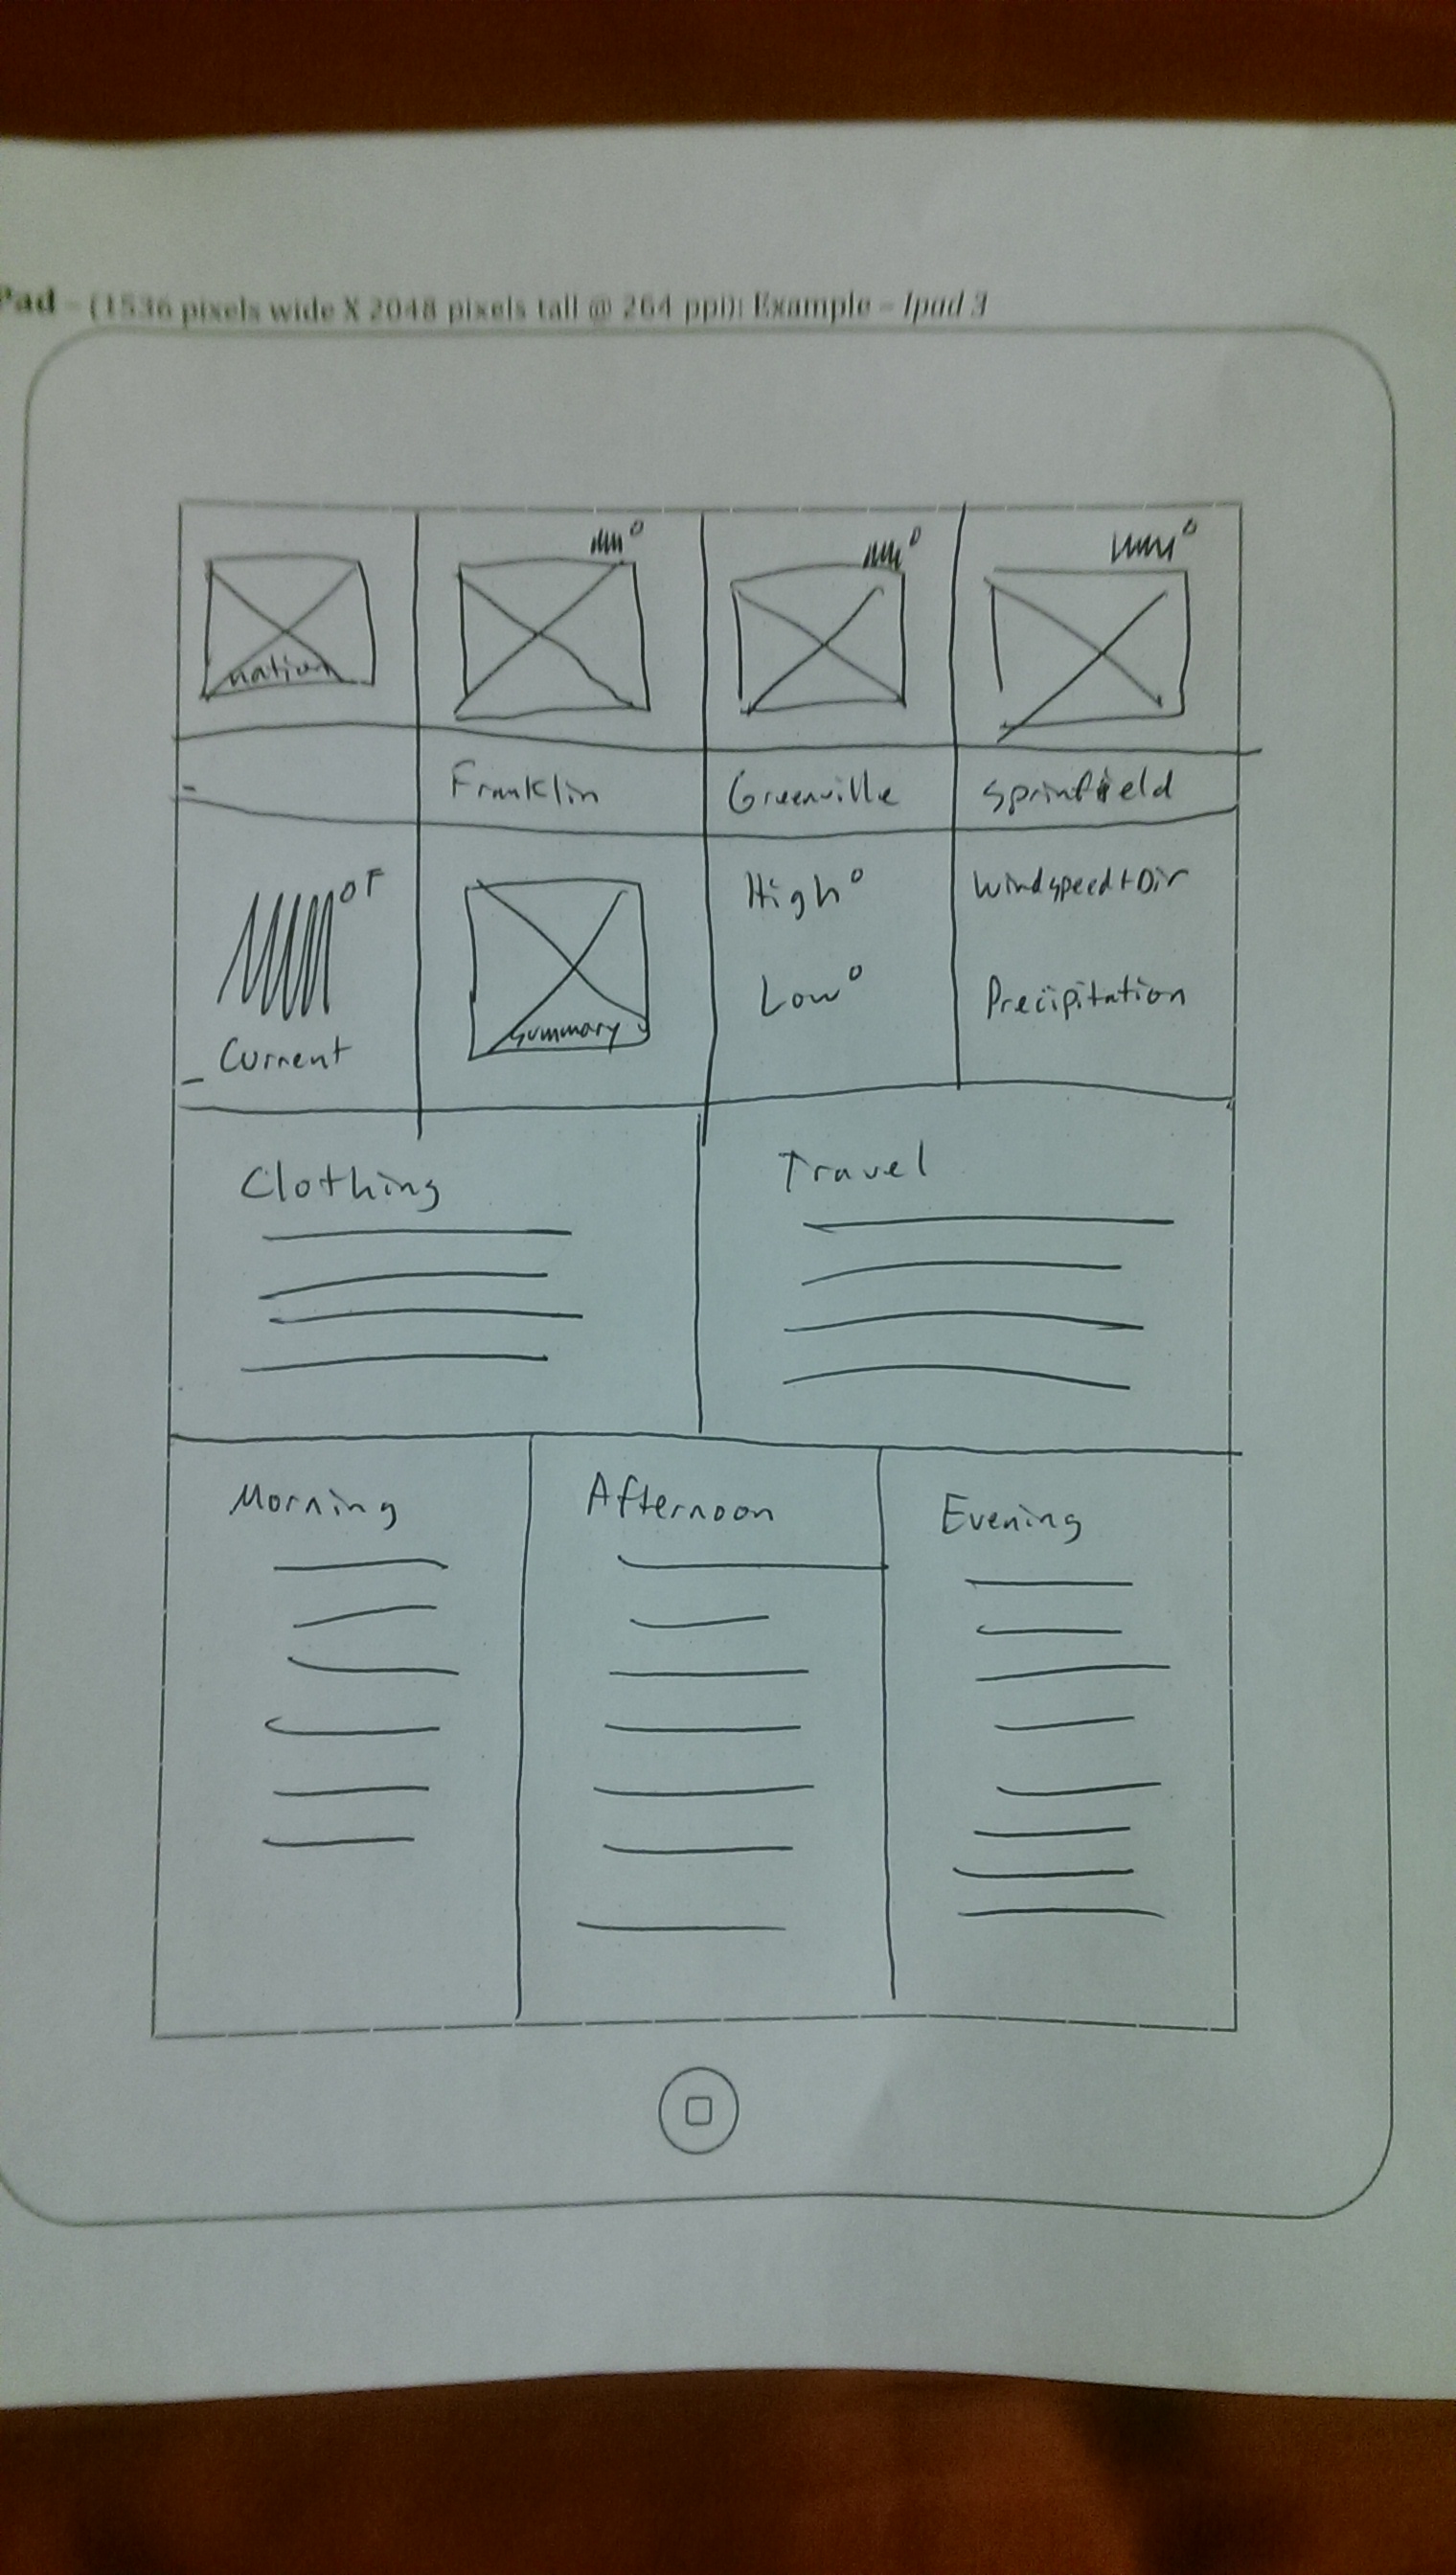 Pad - (1536 pixels wide X 2048 pixels tall @ 264 ppi): Example - Ipad 3
nation
Franklin Greenville Sprinfield
°F
Current
summary
High°
Low°
Windspeed + Dir
Precipitation
Clothing
Travel
Morning
Afternoon
Evening